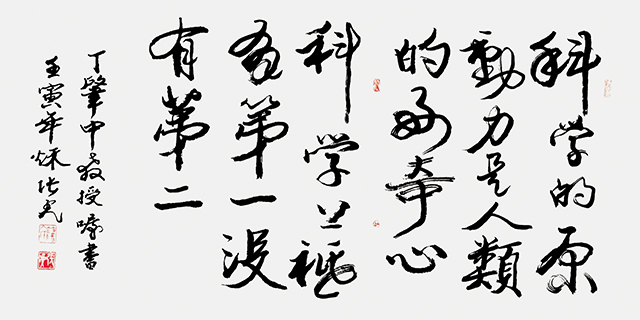 科学的原
動力是人類
的好奇心
科学上祗
有第一没
有第二
丁肇中教授嘱書
壬寅年秋